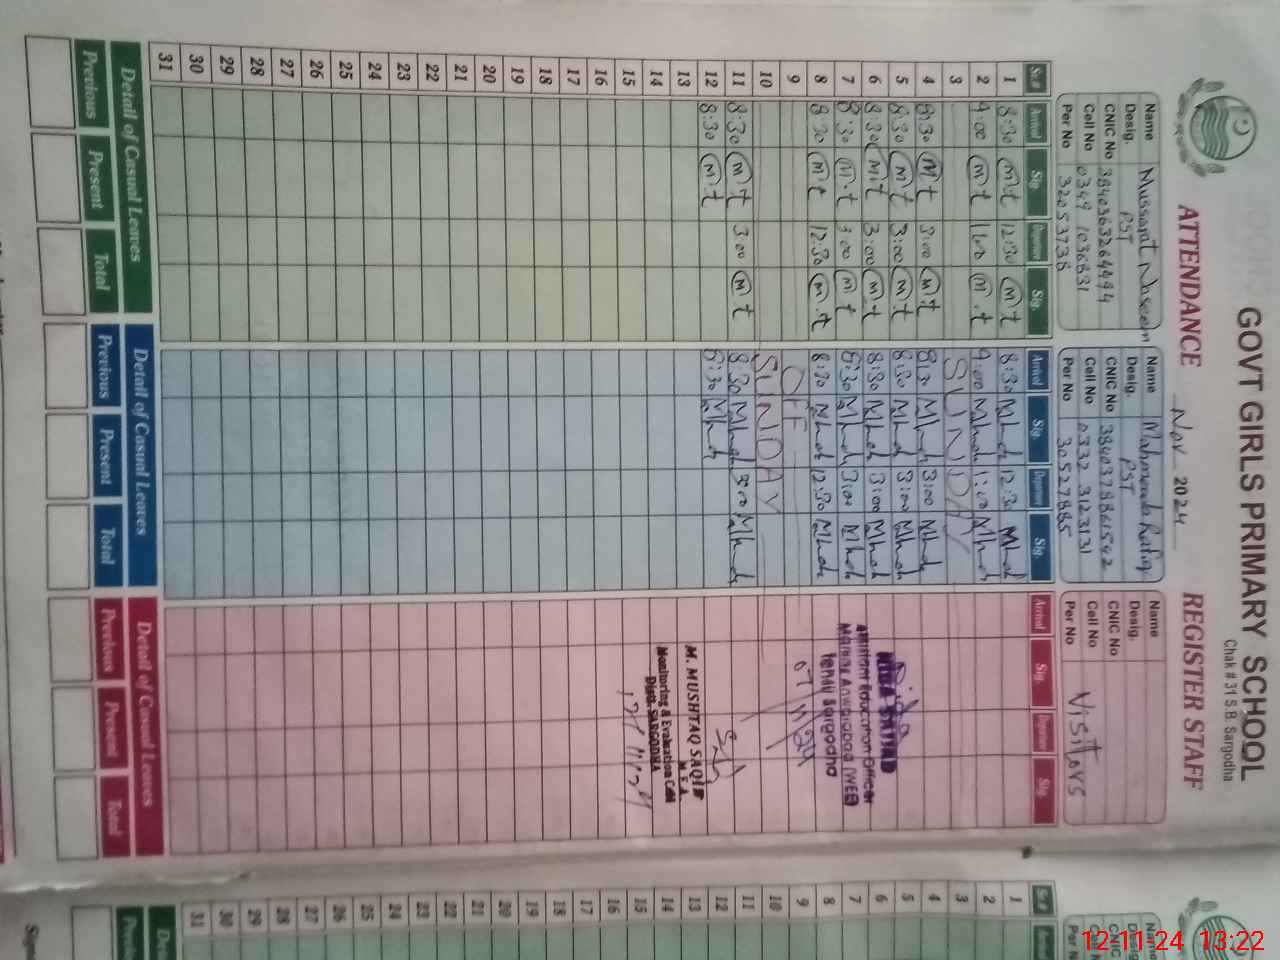 GOVT GIRLS PRIMARY SCHOOL
Chak # 31 S.B. Sargodha
ATTENDANCE Nov 2024 REGISTER STAFF
Name Mussarat Naseem
Desig. PST
CNIC No
Cell No 0349 1036831
Per No 32053738
Name
Desig. PST
CNIC No
Cell No 0332 3123131
Per No 30527885
Name
Desig.
CNIC No
Cell No
Per No
Visitors
Sr.# Arrival Sig. Departure Sig. Arrival Sig. Departure Sig. Arrival Sig. Departure Sig.
1 8:30 M.t 12:30 M.t 8:30 12:30
2 9:00 M.t 1:00 M.t 9:00 1:00
3 SUNDAY
4 8:30 M.t 3:00 M.t 8:30 3:00
5 8:30 M.t 3:00 M.t 8:30 3:00
6 8:30 M.t 3:00 M.t 8:30 3:00
7 8:30 M.t 3:00 M.t 8:30 3:00
8 8:30 M.t 12:30 M.t 8:30 12:30
9 OFF
10 SUNDAY
11 8:30 M.t 3:00 M.t 8:30 3:00
12 8:30 M.t 8:30
13
14
15
16
17
18
19
20
21
22
23
24
25
26
27
28
29
30
31
Assistant Education Officer
Tehsil Sargodha
M. MUSHTAQ SAQIB
M.E.A.
Monitoring & Evaluation Cell
Distt. SARGODHA
Detail of Casual Leaves Detail of Casual Leaves Detail of Casual Leaves
Previous Present Total Previous Present Total Previous Present Total
Sr.#
1
2
3
4
5
6
7
8
9
10
11
12
13
14
15
16
17
18
19
20
21
22
23
24
25
26
27
28
29
30
31
12-11-24 13:22